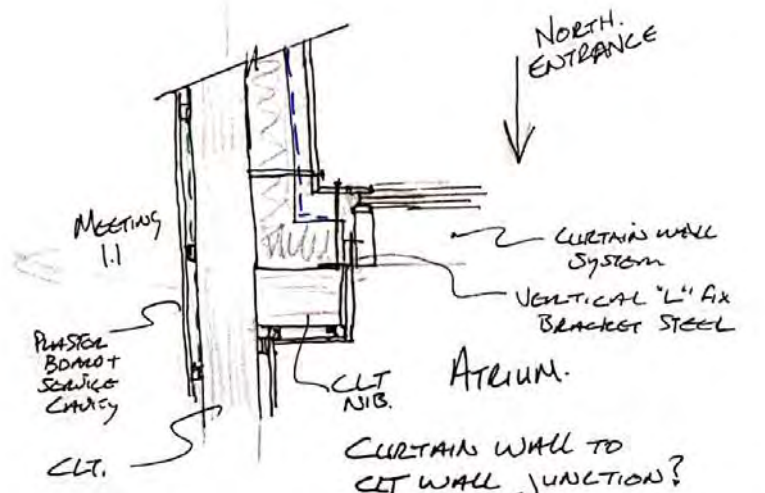 NORTH.
ENTRANCE
MEETING
1.1
CURTAIN WALL
SYSTEM
VERTICAL "L" FIX
BRACKET STEEL
PLASTER
BOARD +
SERVICE
CAVITY
CLT
NIB.
ATRIUM.
CLT.
CURTAIN WALL TO
CLT WALL JUNCTION?